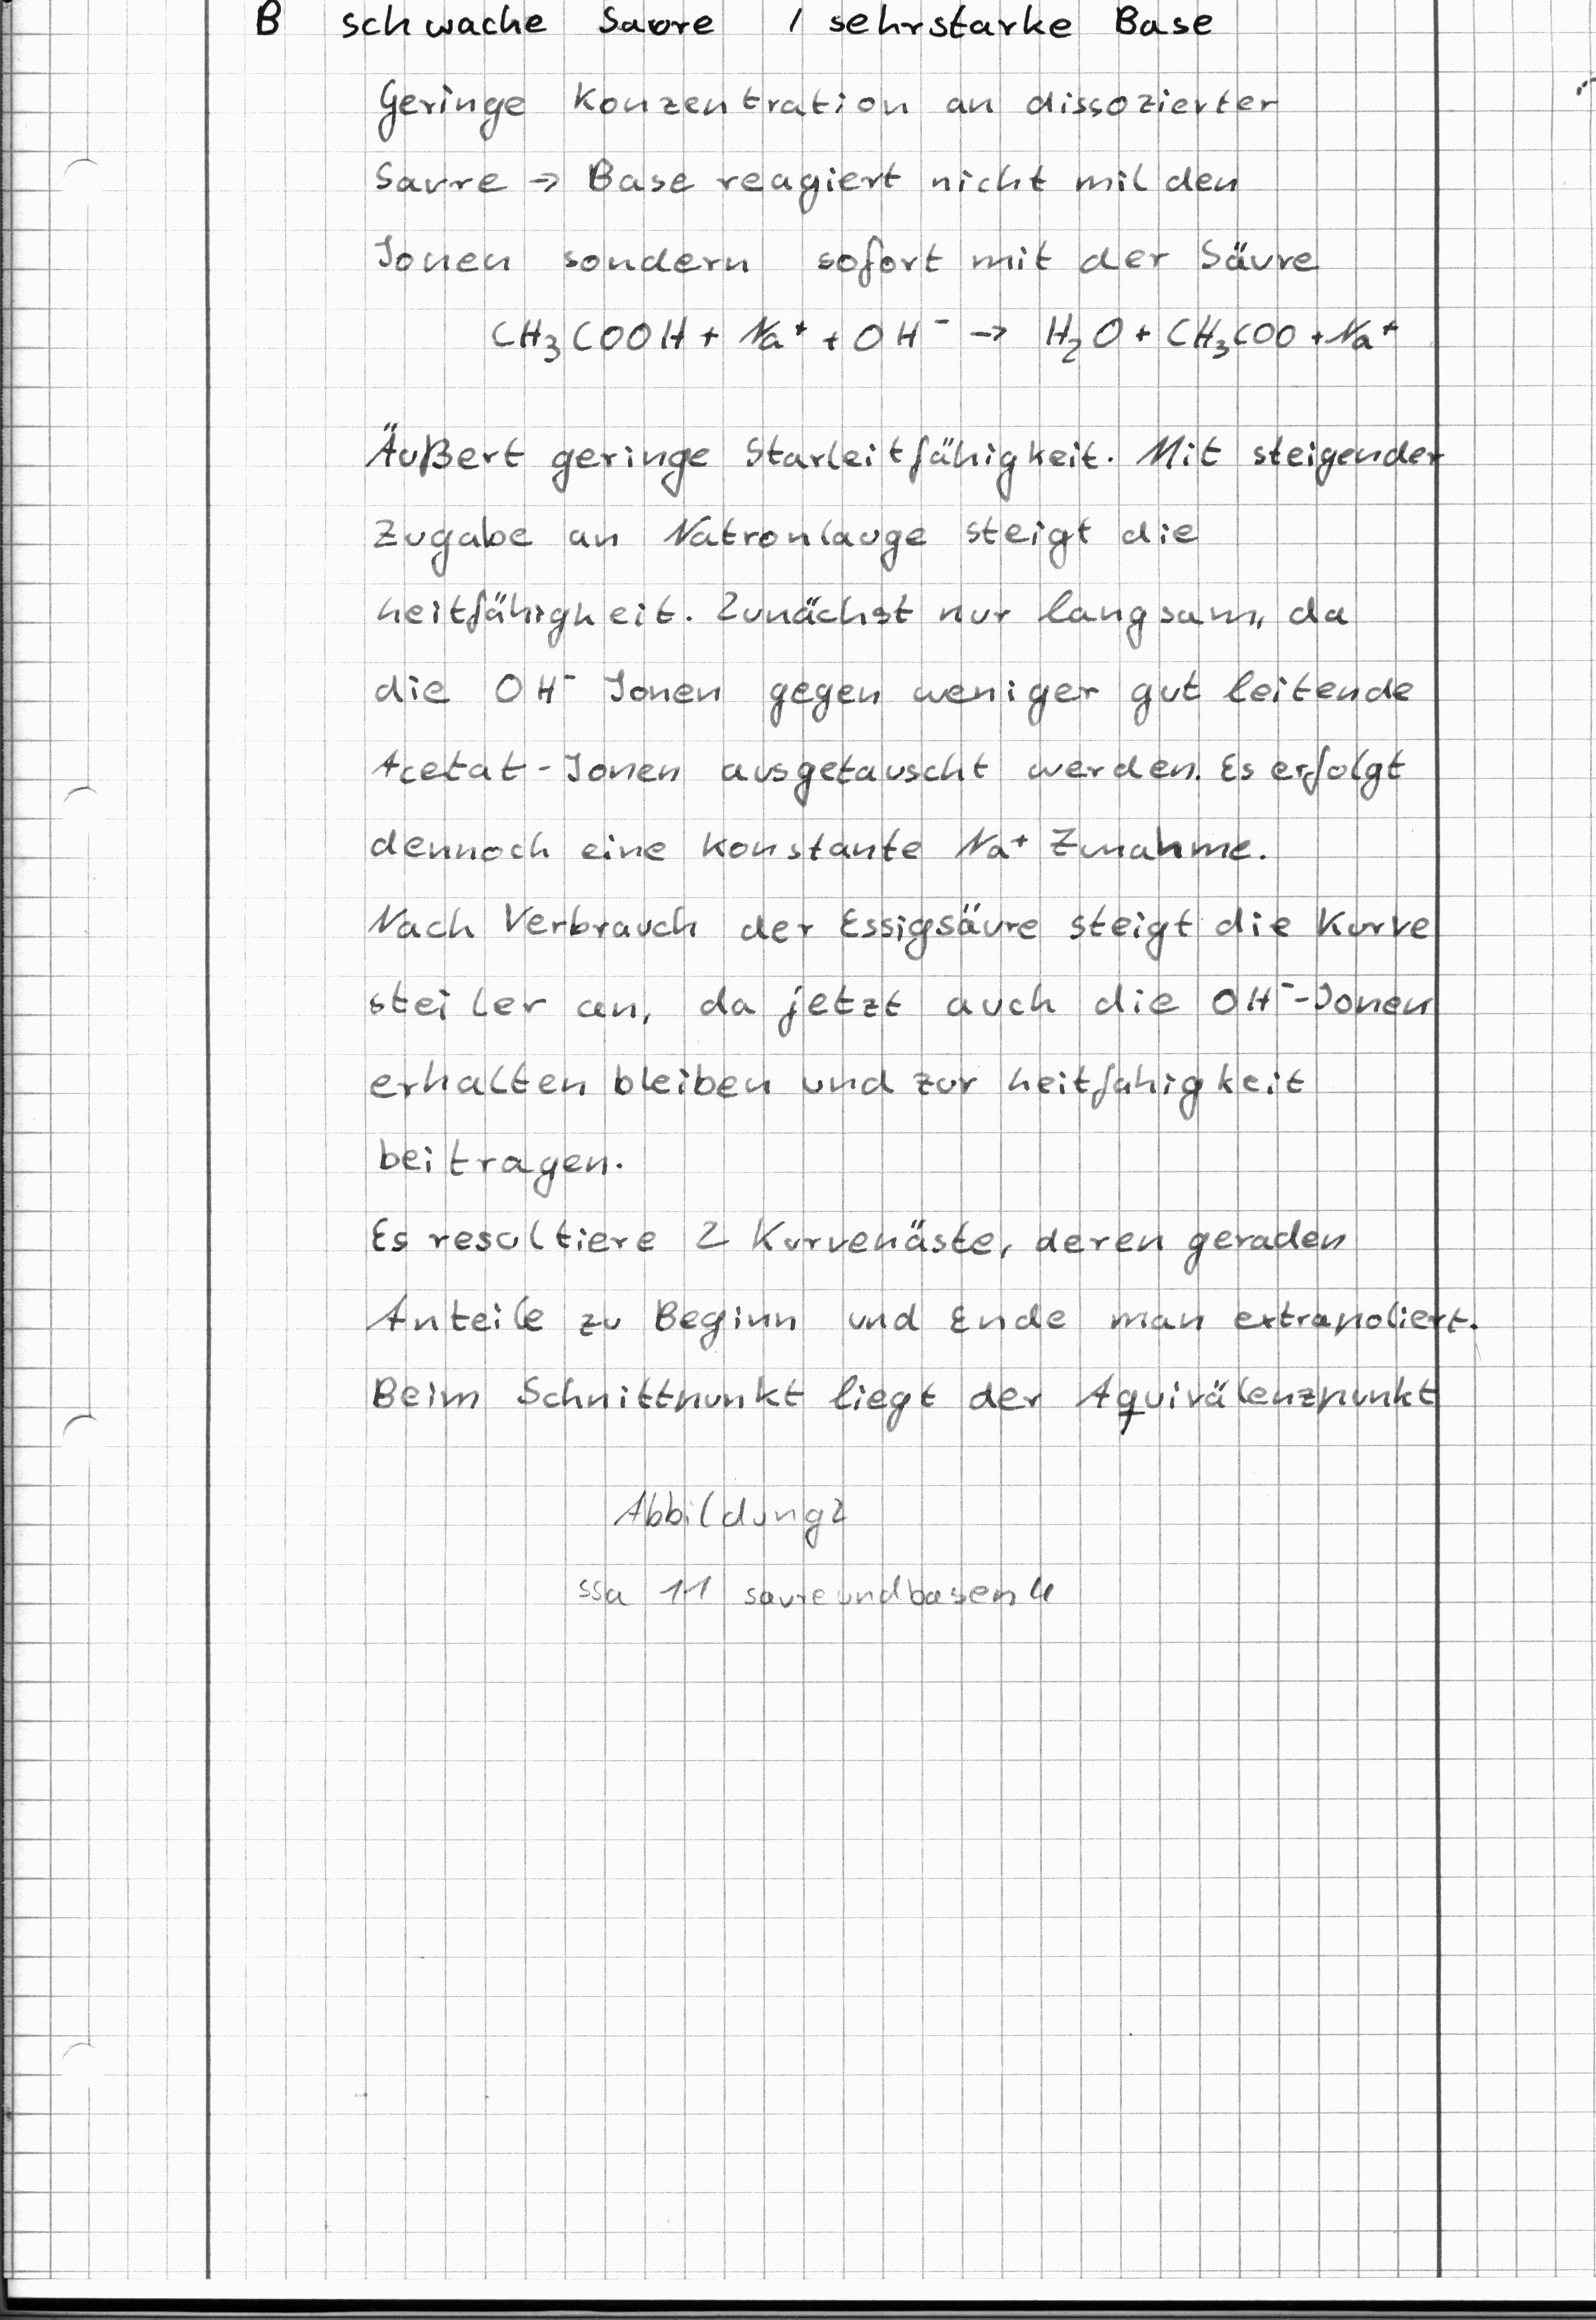 B schwache Saure / sehrstarke Base
Geringe Konzentration an dissozierter
Saure → Base reagiert nicht mit den
Ionen sondern sofort mit der Säure
CH₃COOH + Na⁺ + OH⁻ → H₂O + CH₃COO + Na⁺
Äußert geringe Starleitfähigkeit. Mit steigender
Zugabe an Natronlauge steigt die
Leitfähigkeit. Zunächst nur langsam, da
die OH⁻ Ionen gegen weniger gut leitende
Acetat-Ionen ausgetauscht werden. Es erfolgt
dennoch eine konstante Na⁺ Zunahme.
Nach Verbrauch der Essigsäure steigt die Kurve
steiler an, da jetzt auch die OH⁻-Ionen
erhalten bleiben und zur Leitfahigkeit
beitragen.
Es resultiere 2 Kurvenäste, deren geraden
Anteile zu Beginn und Ende man extrapoliert.
Beim Schnittpunkt liegt der Aquivälenzpunkt
Abbildung2
ssa 11 saureundbasen4